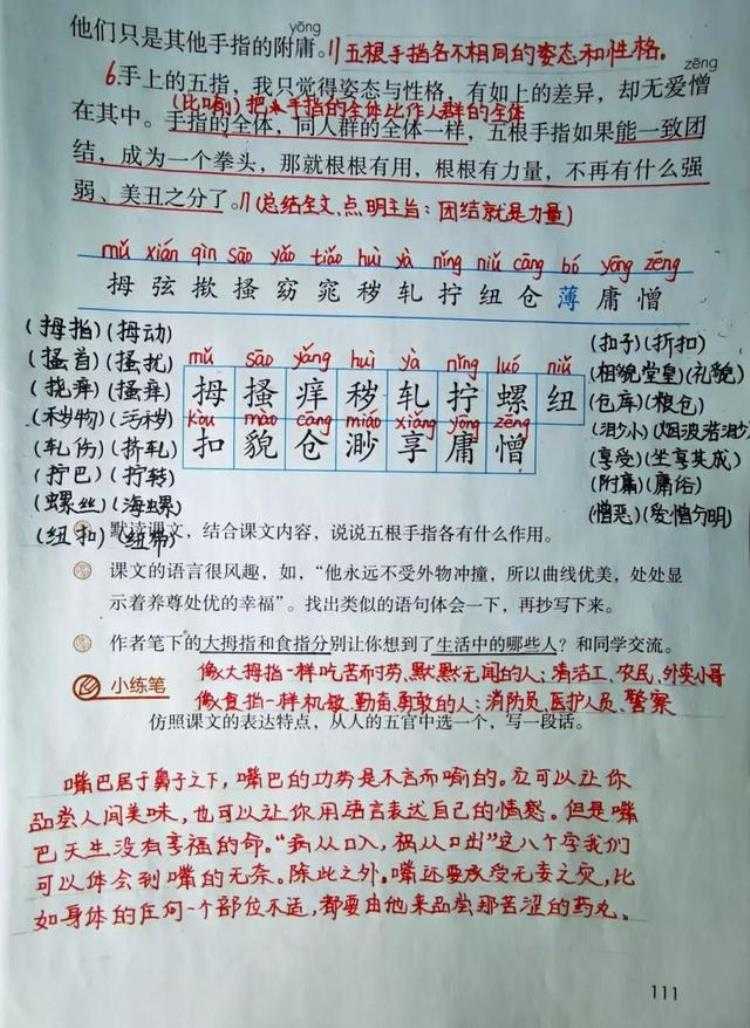 yōng
他们只是其他手指的附庸。∥五根手指各不相同的姿态和性格。
zēng
6.手上的五指，我只觉得姿态与性格，有如上的差异，却无爱憎
(比喻)把手指的全体比作人群的全体
在其中。手指的全体，同人群的全体一样，五根手指如果能一致团
结，成为一个拳头，那就根根有用，根根有力量，不再有什么强
弱、美丑之分了。∥(总结全文、点明主旨：团结就是力量)
mǔ xián qìn sāo yǎo tiǎo huì yà nǐng niǔ cāng bó yōng zēng
拇 弦 揿 搔 窈 窕 秽 轧 拧 纽 仓 薄 庸 憎
(拇指)(拇动)
(搔首)(搔扰)
(挠痒)(搔痒)
(秽物)(污秽)
(轧伤)(挤轧)
(拧巴)(拧转)
(螺丝)(海螺)
(纽扣)(纽带)
mǔ sāo yǎng huì yà nǐng luó niǔ
拇 搔 痒 秽 轧 拧 螺 纽
kòu mào cāng miǎo xiǎng yōng zēng
扣 貌 仓 渺 享 庸 憎
(扣子)(折扣)
(相貌堂皇)(礼貌)
(仓库)(粮仓)
(渺小)(烟波浩渺)
(享受)(坐享其成)
(附庸)(庸俗)
(憎恶)(爱憎分明)
默读课文，结合课文内容，说说五根手指各有什么作用。
课文的语言很风趣，如，“他永远不受外物冲撞，所以曲线优美，处处显
示着养尊处优的幸福”。找出类似的语句体会一下，再抄写下来。
作者笔下的大拇指和食指分别让你想到了生活中的哪些人？和同学交流。
像大拇指一样吃苦耐劳、默默无闻的人：清洁工、农民、外卖小哥
小练笔
像食指一样机敏、勤奋、勇敢的人：消防员、医护人员、警察
仿照课文的表达特点，从人的五官中选一个，写一段话。
嘴巴居于鼻子之下，嘴巴的功劳是不言而喻的。它可以让你
品尝人间美味，也可以让你用语言表达自己的情感。但是嘴
巴天生没有享福的命。“病从口入，祸从口出”这八个字我们
可以体会到嘴的无奈。除此之外，嘴还要承受无妄之灾，比
如身体的任何一个部位不适，都要由他来品尝那苦涩的药丸。
111